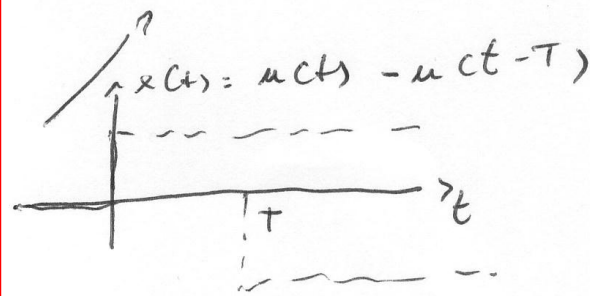 x(t) = u(t) - u(t-T)
T
t